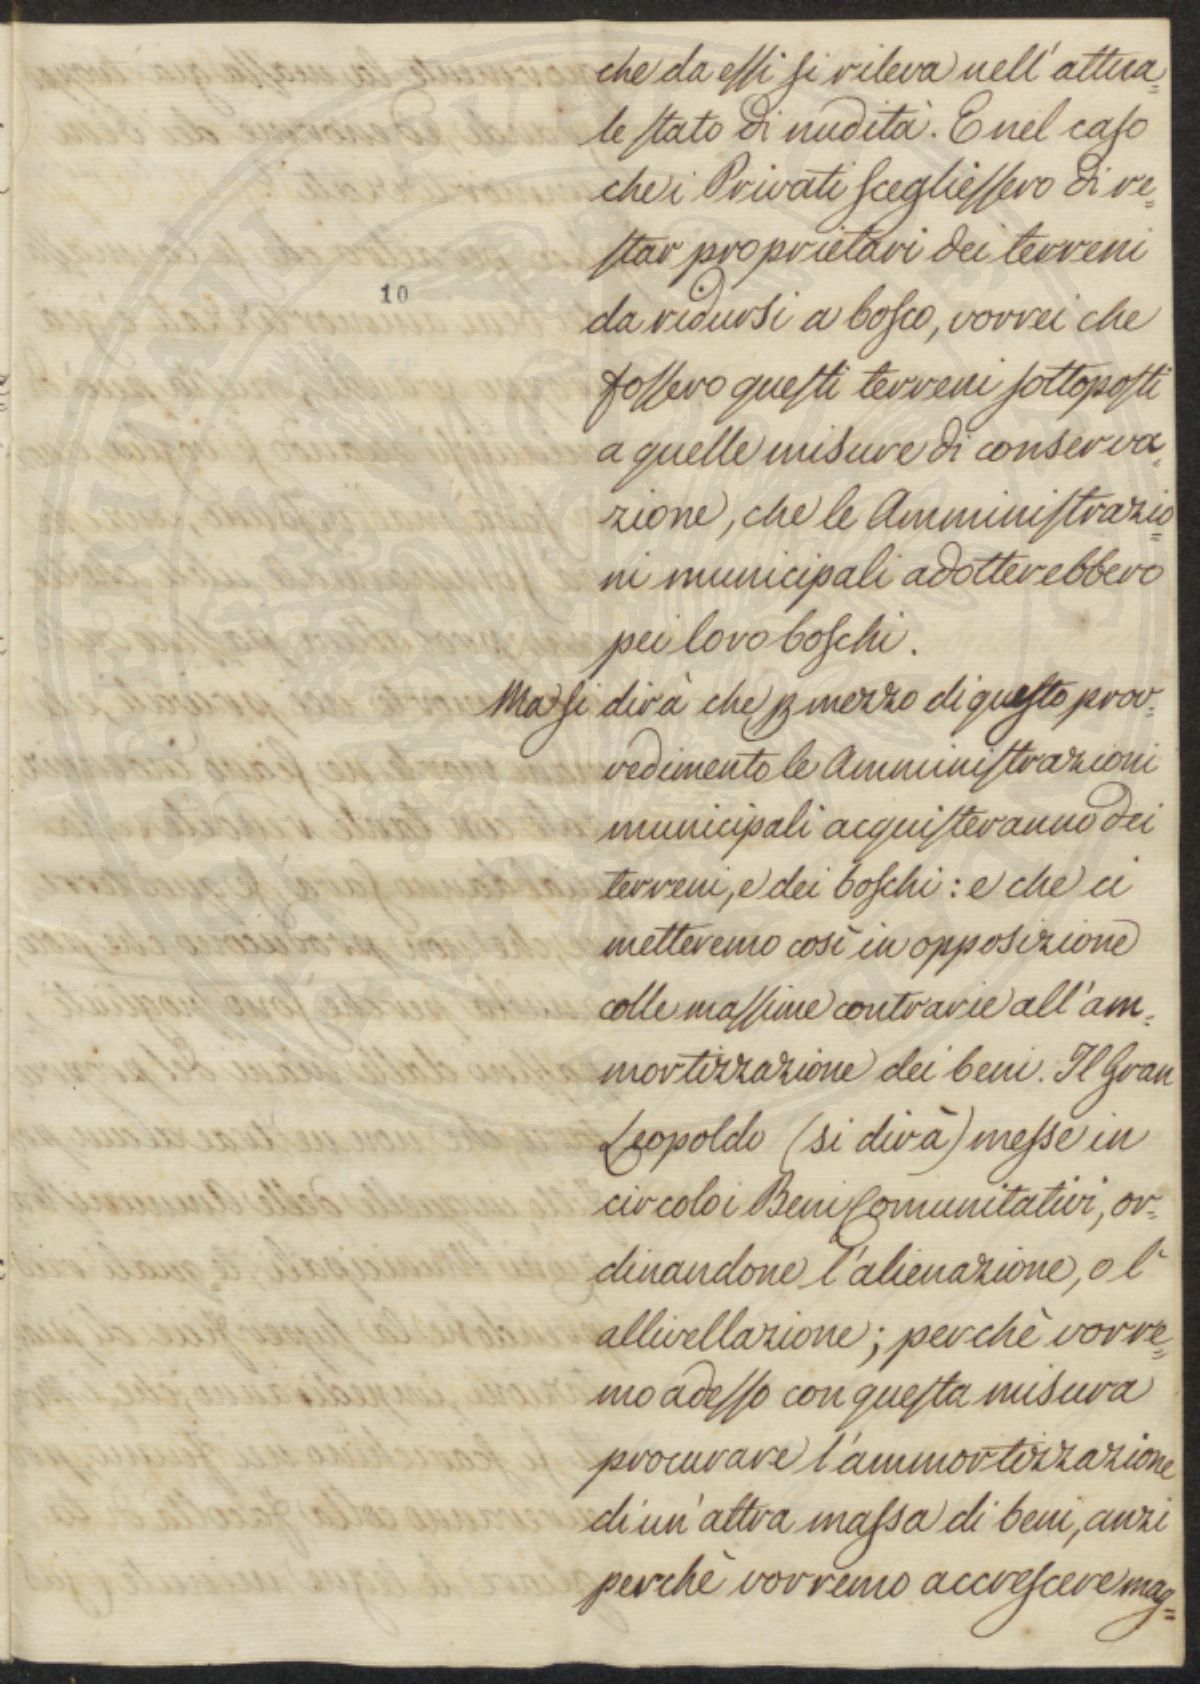 che da essi si rileva nell'attua=
le stato di nudità. E nel caso
che i Privati scegliessero di re=
star proprietari dei terreni
10
da ridursi a bosco, vorrei che
fossero questi terreni sottoposti
a quelle misure di conserva=
zione, che le Amministrazio=
ni municipali adotterebbero
pei loro boschi.
Ma si dirà che p mezzo di questo prov=
vedimento le Amministrazioni
municipali acquisteranno dei
terreni, e dei boschi: e che ci
metteremo così in opposizione
colle massime contrarie all'am=
mortizzazione dei beni. Il Gran
Leopoldo (si dirà) messe in
circolo i Beni Comunitativi, or=
dinandone l'alienazione, o l'
allivellazione; perchè vorre=
mo adesso con questa misura
procurare l'ammortizzazione
di un'altra massa di beni, anzi
perchè vorremo accrescere mag=